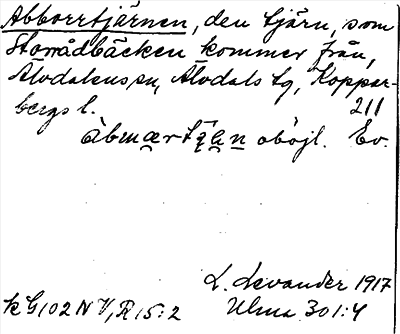 Abborrtjärnen, den tjärn, som
Storrådbäcken kommer från,
Älvdalens sn, Älvdals tg, Koppar-
bergs l. 211
oböjl. Ev.
L. Levander 1917
kG102NV, R15:2 Ulma 301:4